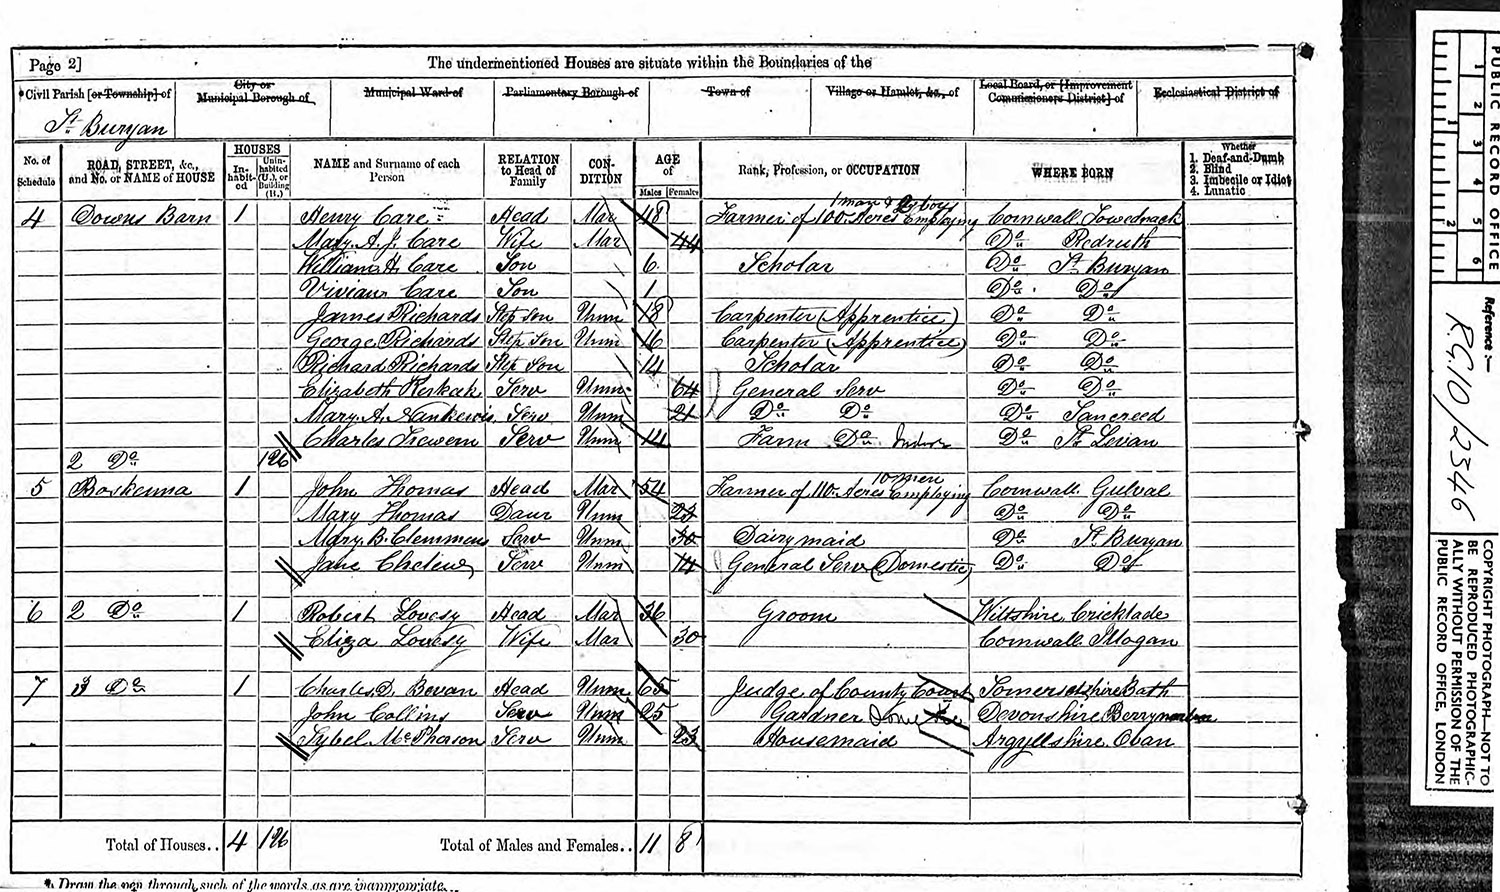 Page 2] The undermentioned Houses are situate within the Boundaries of the
Civil Parish [or Township] of City or Municipal Borough of Municipal Ward of Parliamentary Borough of Town of Village or Hamlet, &c., of Local Board, or [Improvement Commissioners District] of Ecclesiastical District of
St Buryan
No. of Schedule ROAD, STREET, &c., and No. or NAME of HOUSE HOUSES Inhabited Uninhabited (U.), or Building (B.) NAME and Surname of each Person RELATION to Head of Family CONDITION AGE of Males Females Rank, Profession, or OCCUPATION WHERE BORN Whether
1. Deaf-and-Dumb
2. Blind
3. Imbecile or Idiot
4. Lunatic
1 man & 2 boys
4 Downs Barn 1 Henry Care Head Mar 48 Farmer of 100 Acres Employing Cornwall Towednack
Mary A. J. Care Wife Mar 44 Do Redruth
William H. Care Son 6 Scholar Do St Buryan
Vivian Care Son 1 Do Do
James Richards Step Son Unm 18 Carpenter (Apprentice) Do Do
George Richards Step Son Unm 16 Carpenter (Apprentice) Do Do
Richard Richards Step Son 14 Scholar Do Do
Elizabeth Serv Unm 64 General Serv Do Do
Mary A. Serv Unm 21 Do Do Do Sancreed
Charles Trewern Serv Unm 14 Farm Do Indoor Do St Levan
2 Do 1
10 men
5 Boskenna 1 John Thomas Head Mar 54 Farmer of 110 Acres Employing Cornwall Gulval
Mary Thomas Daur Unm Do Do
Mary B. Clemmens Serv Unm 30 Dairymaid Do St Buryan
Jane Serv Unm 14 General Serv (Domestic) Do Do
6 2 Do 1 Robert Lovesy Head Mar 36 Groom Wiltshire Cricklade
Eliza Lovesy Wife Mar 30 Cornwall Illogan
7 3 Do 1 Charles D. Bevan Head Unm 65 Judge of County Court Somersetshire Bath
John Collins Serv Unm 25 Gardner Domestic Devonshire
Sybel McPherson Serv Unm 23 Housemaid Argyllshire Oban
Total of Houses.. 4 1 Total of Males and Females.. 11 8
* Draw the pen through such of the words as are inappropriate.
PUBLIC RECORD OFFICE
1 2 3 4 5 6
1 2
Reference:—
R.G. 10/2346
COPYRIGHT PHOTOGRAPH—NOT TO
BE REPRODUCED PHOTOGRAPHIC-
ALLY WITHOUT PERMISSION OF THE
PUBLIC RECORD OFFICE, LONDON